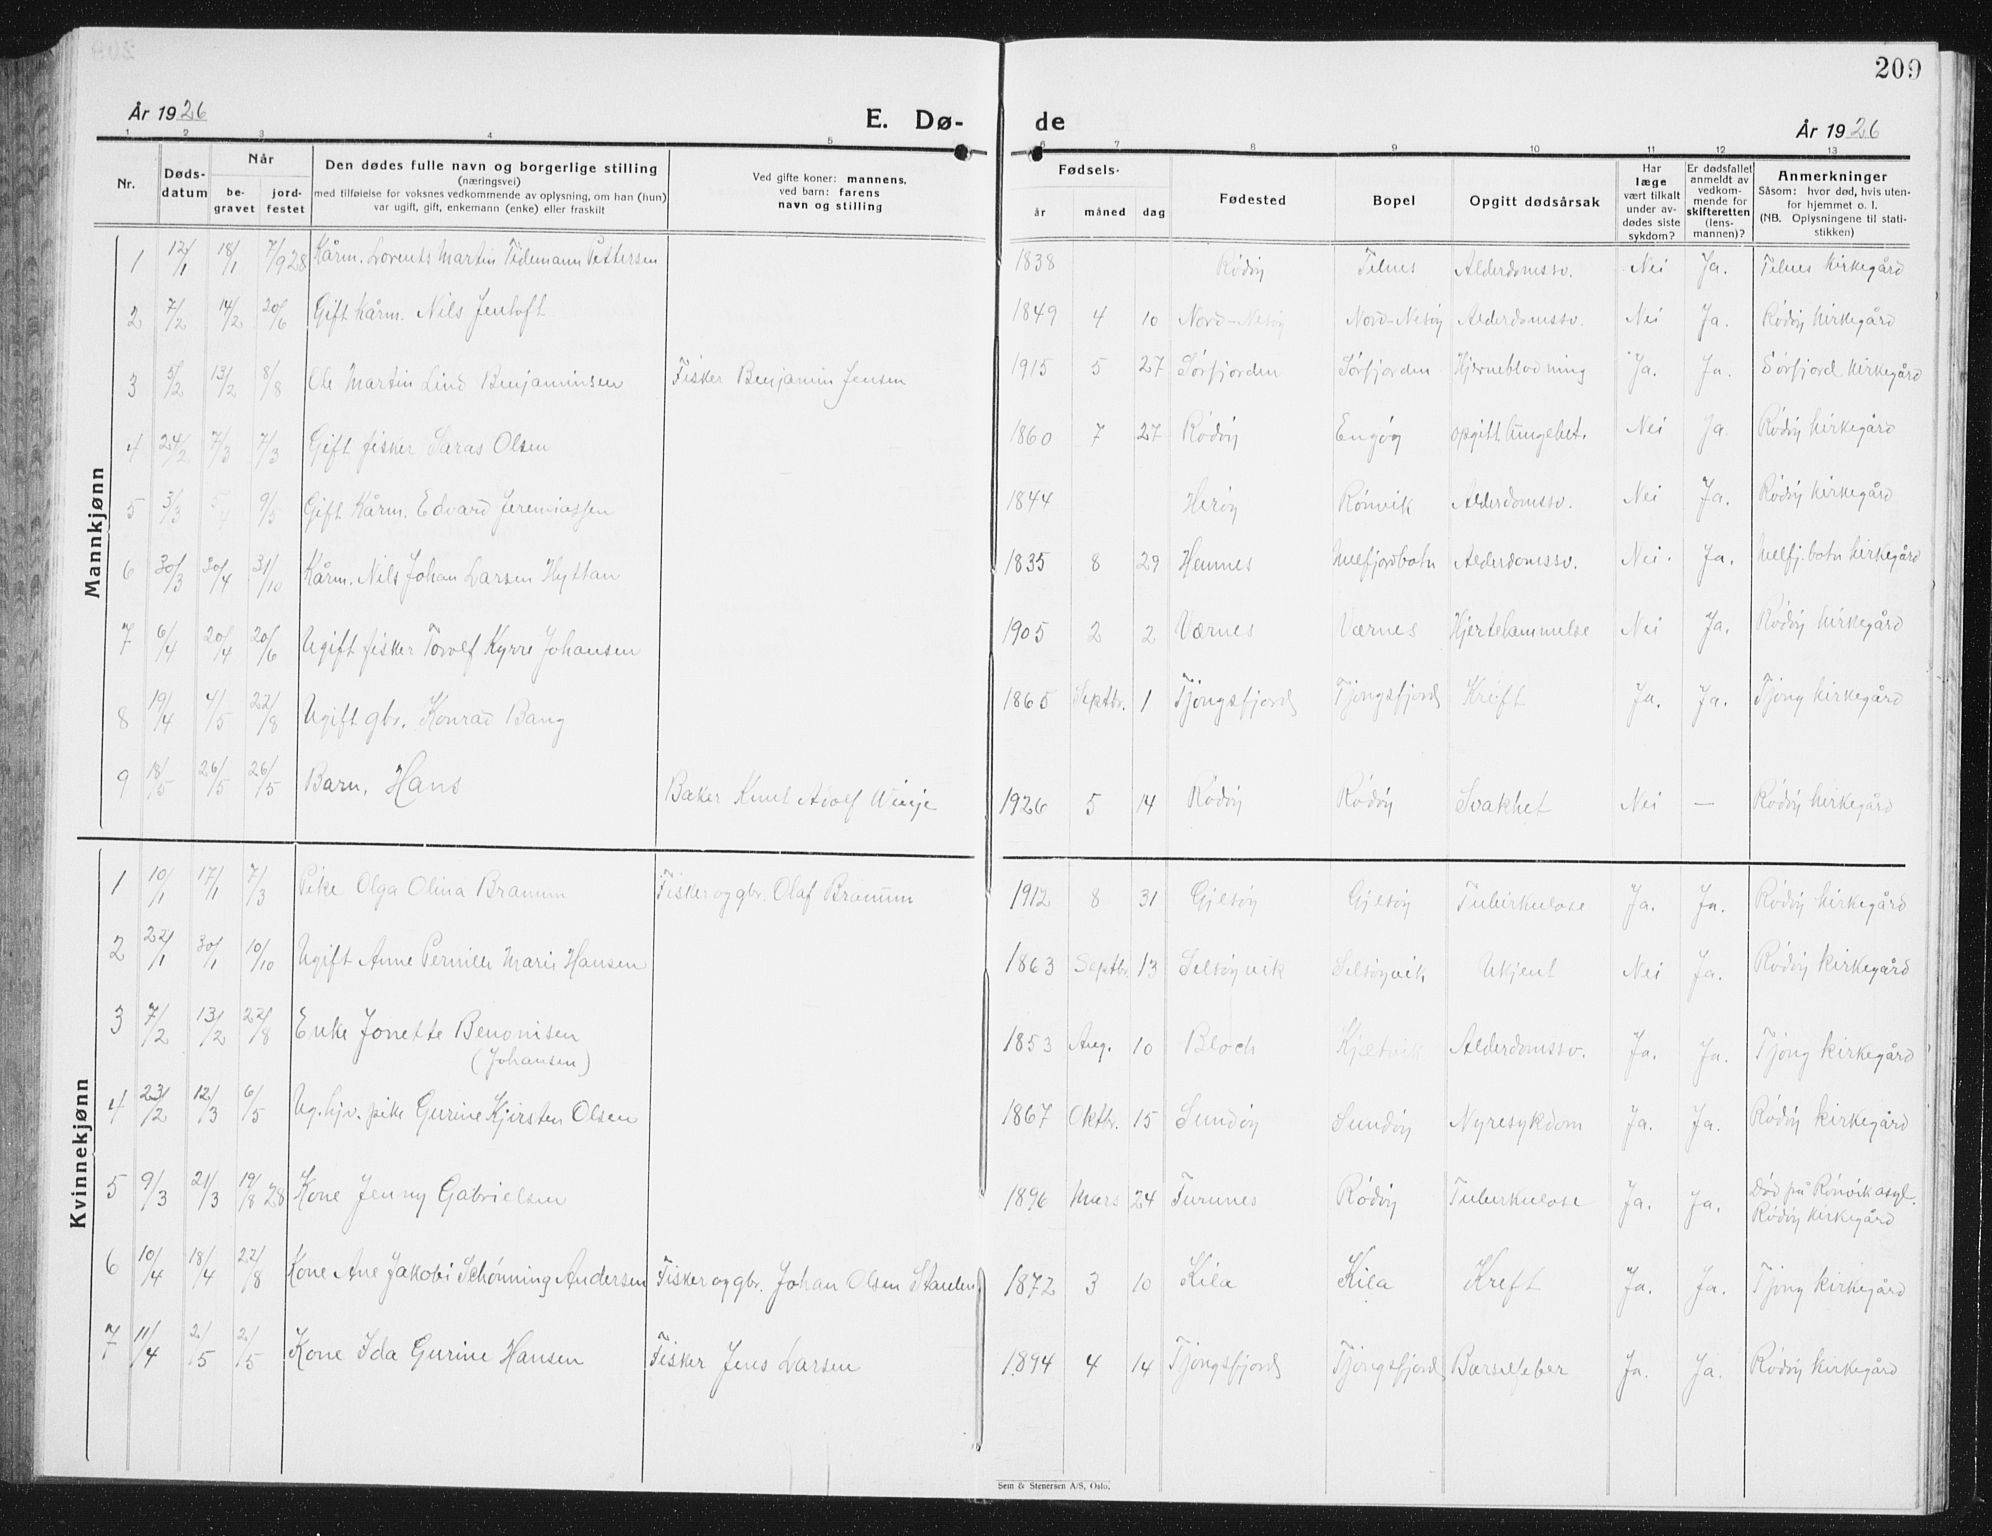 209
År 1926 E. Dø- de År 1926
1 2 3 4 5 6 7 8 9 10 11 12 13
Nr.
Døds-
datum
Når
be-
gravet
jord-
festet
Den dødes fulle navn og borgerlige stilling
(næringsvei)
med tilføielse for voksnes vedkommende av oplysning, om han (hun)
var ugift, gift, enkemann (enke) eller fraskilt
Ved gifte koner: mannens,
ved barn: farens
navn og stilling
Fødsels-
år måned dag
Fødested
Bopel
Opgitt dødsårsak
Har
læge
vært tilkalt
under av-
dødes siste
sykdom?
Er dødsfallet
anmeldt av
vedkom-
mende for
skifteretten
(lens-
mannen)?
Anmerkninger
Såsom: hvor død, hvis uten-
for hjemmet o. l.
(NB. Oplysningene til stati-
stikken)
Mannkjønn
1 12/1 18/1 7/9 28 Kårm. Lorents Martin Tidemann Pettersen 1838 Rødøy Telnes Alderdomssv. Nei Ja. Telnes kirkegård
2 7/2 14/2 20/6 Gift kårm. Nils Jentoft 1849 4 10 Nord-Nesøy Nord-Nesøy Alderdomssv. Nei Ja. Rødøy kirkegård
3 5/2 13/2 8/8 Ole Martin Lind Benjaminsen Fisker Benjamin Jensen 1915 5 27 Sørfjorden Sørfjorden Hjerneblødning Ja. Ja. Sørfjord kirkegård
4 24/2 7/3 7/3 Gift fisker Saras Olsen 1860 7 27 Rødøy Engøy opgitt lungebet. Nei Ja Rødøy kirkegård
5 3/3 5/4 9/5 Gift Kårm. Edvard Jeremiassen 1844 Herøy Rønvik Alderdomssv. Nei Ja. Rødøy kirkegård
6 30/3 20/4 31/10 Kårm. Nils Johan Larsen Hyttan 1835 8 29 Hemnes Melfjordbotn Alderdomssv. Nei. Ja. Melfj.botn kirkegård
7 6/4 20/4 20/6 Ugift fisker Torolf Kyrre Johansen 1905 2 2 Værnes Værnes Hjertelammelse Nei Ja. Rødøy kirkegård
8 19/4 4/5 22/8 Ugift gbr. Konrad Bang 1865 Septbr. 1 Tjongsfjord Tjongsfjord Kreft Ja. Ja. Tjong kirkegård
9 18/5 26/5 26/5 Barn, Hans Baker Knut Adolf Winje 1926 5 14 Rødøy Rødøy Svakhet Nei — Rødøy kirkegård
Kvinnekjønn
1 10/1 17/1 7/3 Pike Olga Olina Bramum Fisker og gbr. Olaf Bramum 1912 8 31 Gjesøy Gjesøy Tuberkulose Ja. Ja. Rødøy kirkegård
2 22/1 30/1 10/10 Ugift Anne Pernille Marie Hansen 1863 Septbr. 13 Selsøyvik Selsøyvik Ukjent Nei Ja. Rødøy kirkegård
3 7/2 13/2 22/8 Enke Jonette Benonisen 1853 Aug. 10 Bloch Kjelvik Alderdomssv. Ja. Ja. Tjong kirkegård
(Johansen)
4 23/2 12/3 6/5 Ug. hjv. pike Gurine Kjirsten Olsen 1867 Oktbr. 15 Sundøy Sundøy Nyresykdom Ja. Ja. Rødøy kirkegård
5 9/3 21/3 19/8 28 Kone Jenny Gabrielsen 1896 Mars 24 Turunes Rødøy Tuberkulose Ja. Ja. Død på Rønvik asyl.
Rødøy kirkegård
6 10/4 18/4 22/8 Kone Ane Jakobi Schønning Andersen Fisker og gbr. Johan Olsen 1872 3 10 Kila Kila Kreft Ja. Ja. Tjong kirkegård
7 11/4 2/5 2/5 Kone Ida Gurine Hansen Fisker Jens Larsen 1894 4 14 Tjongsfjord Tjongsfjord Barselfeber Ja. Ja. Rødøy kirkegård
Sem & Stenersen A/S, Oslo.